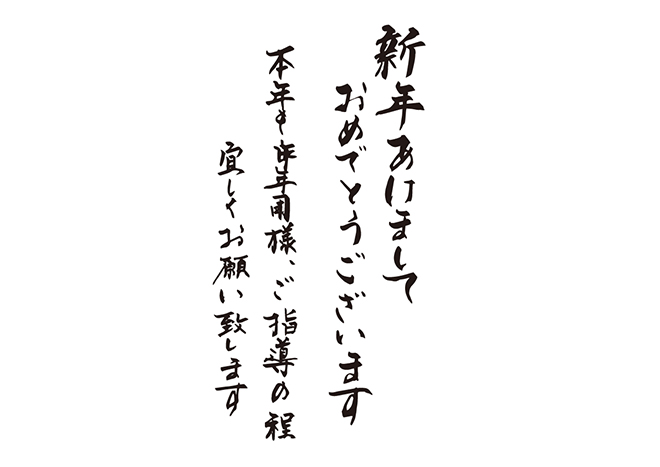 新年あけまして
おめでとうございます
本年も昨年同様、ご指導の程
宜しくお願い致します